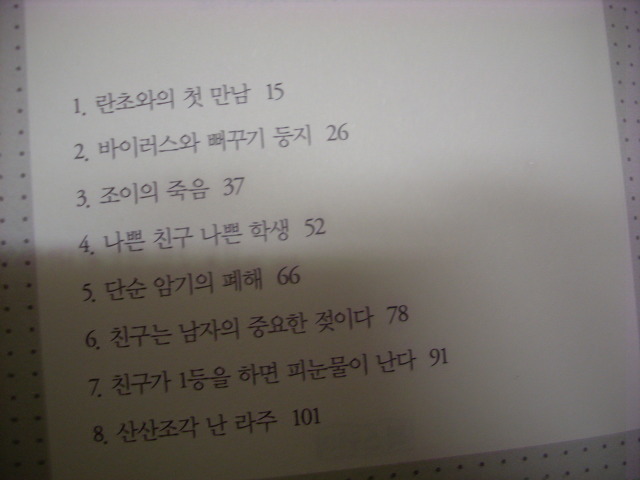 1. 란초와의 첫 만남 15
2. 바이러스와 뻐꾸기 둥지 26
3. 조이의 죽음 37
4. 나쁜 친구 나쁜 학생 52
5. 단순 암기의 폐해 66
6. 친구는 남자의 중요한 젖이다 78
7. 친구가 1등을 하면 피눈물이 난다 91
8. 산산조각 난 라주 101